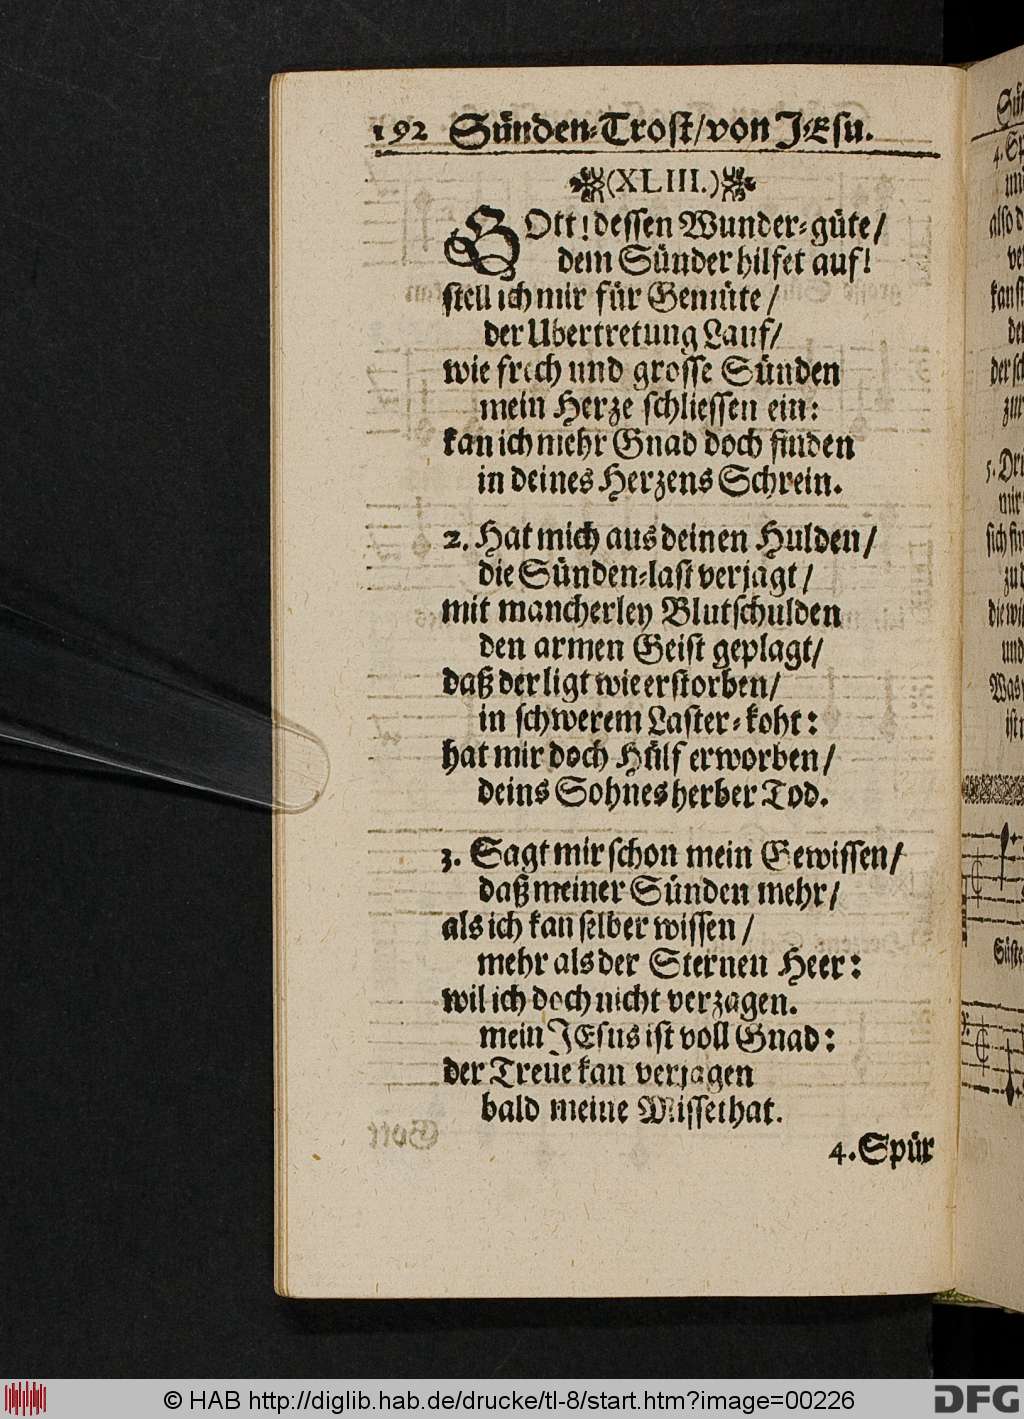 192 Sünden-Trost/von JEsu.
(XLIII.)
GOtt! dessen Wunder-güte/
dem Sünder hilfet auf!
stell ich mir für Gemüte/
der Ubertretung Lauf/
wie frech und grosse Sünden
mein Herze schliessen ein:
kan ich mehr Gnad doch finden
in deines Herzens Schrein.
2. Hat mich aus deinen Hulden/
die Sünden-last verjagt/
mit mancherley Blutschulden
den armen Geist geplagt/
daß der ligt wie erstorben/
in schwerem Laster-koht:
hat mir doch Hülf erworben/
deins Sohnes herber Tod.
3. Sagt mir schon mein Gewissen/
daß meiner Sünden mehr/
als ich kan selber wissen/
mehr als der Sternen Heer:
wil ich doch nicht verzagen.
mein JEsus ist voll Gnad:
der Treue kan verjagen
bald meine Missethat.
4. Spür
© HAB http://diglib.hab.de/drucke/tl-8/start.htm?image=00226
DFG